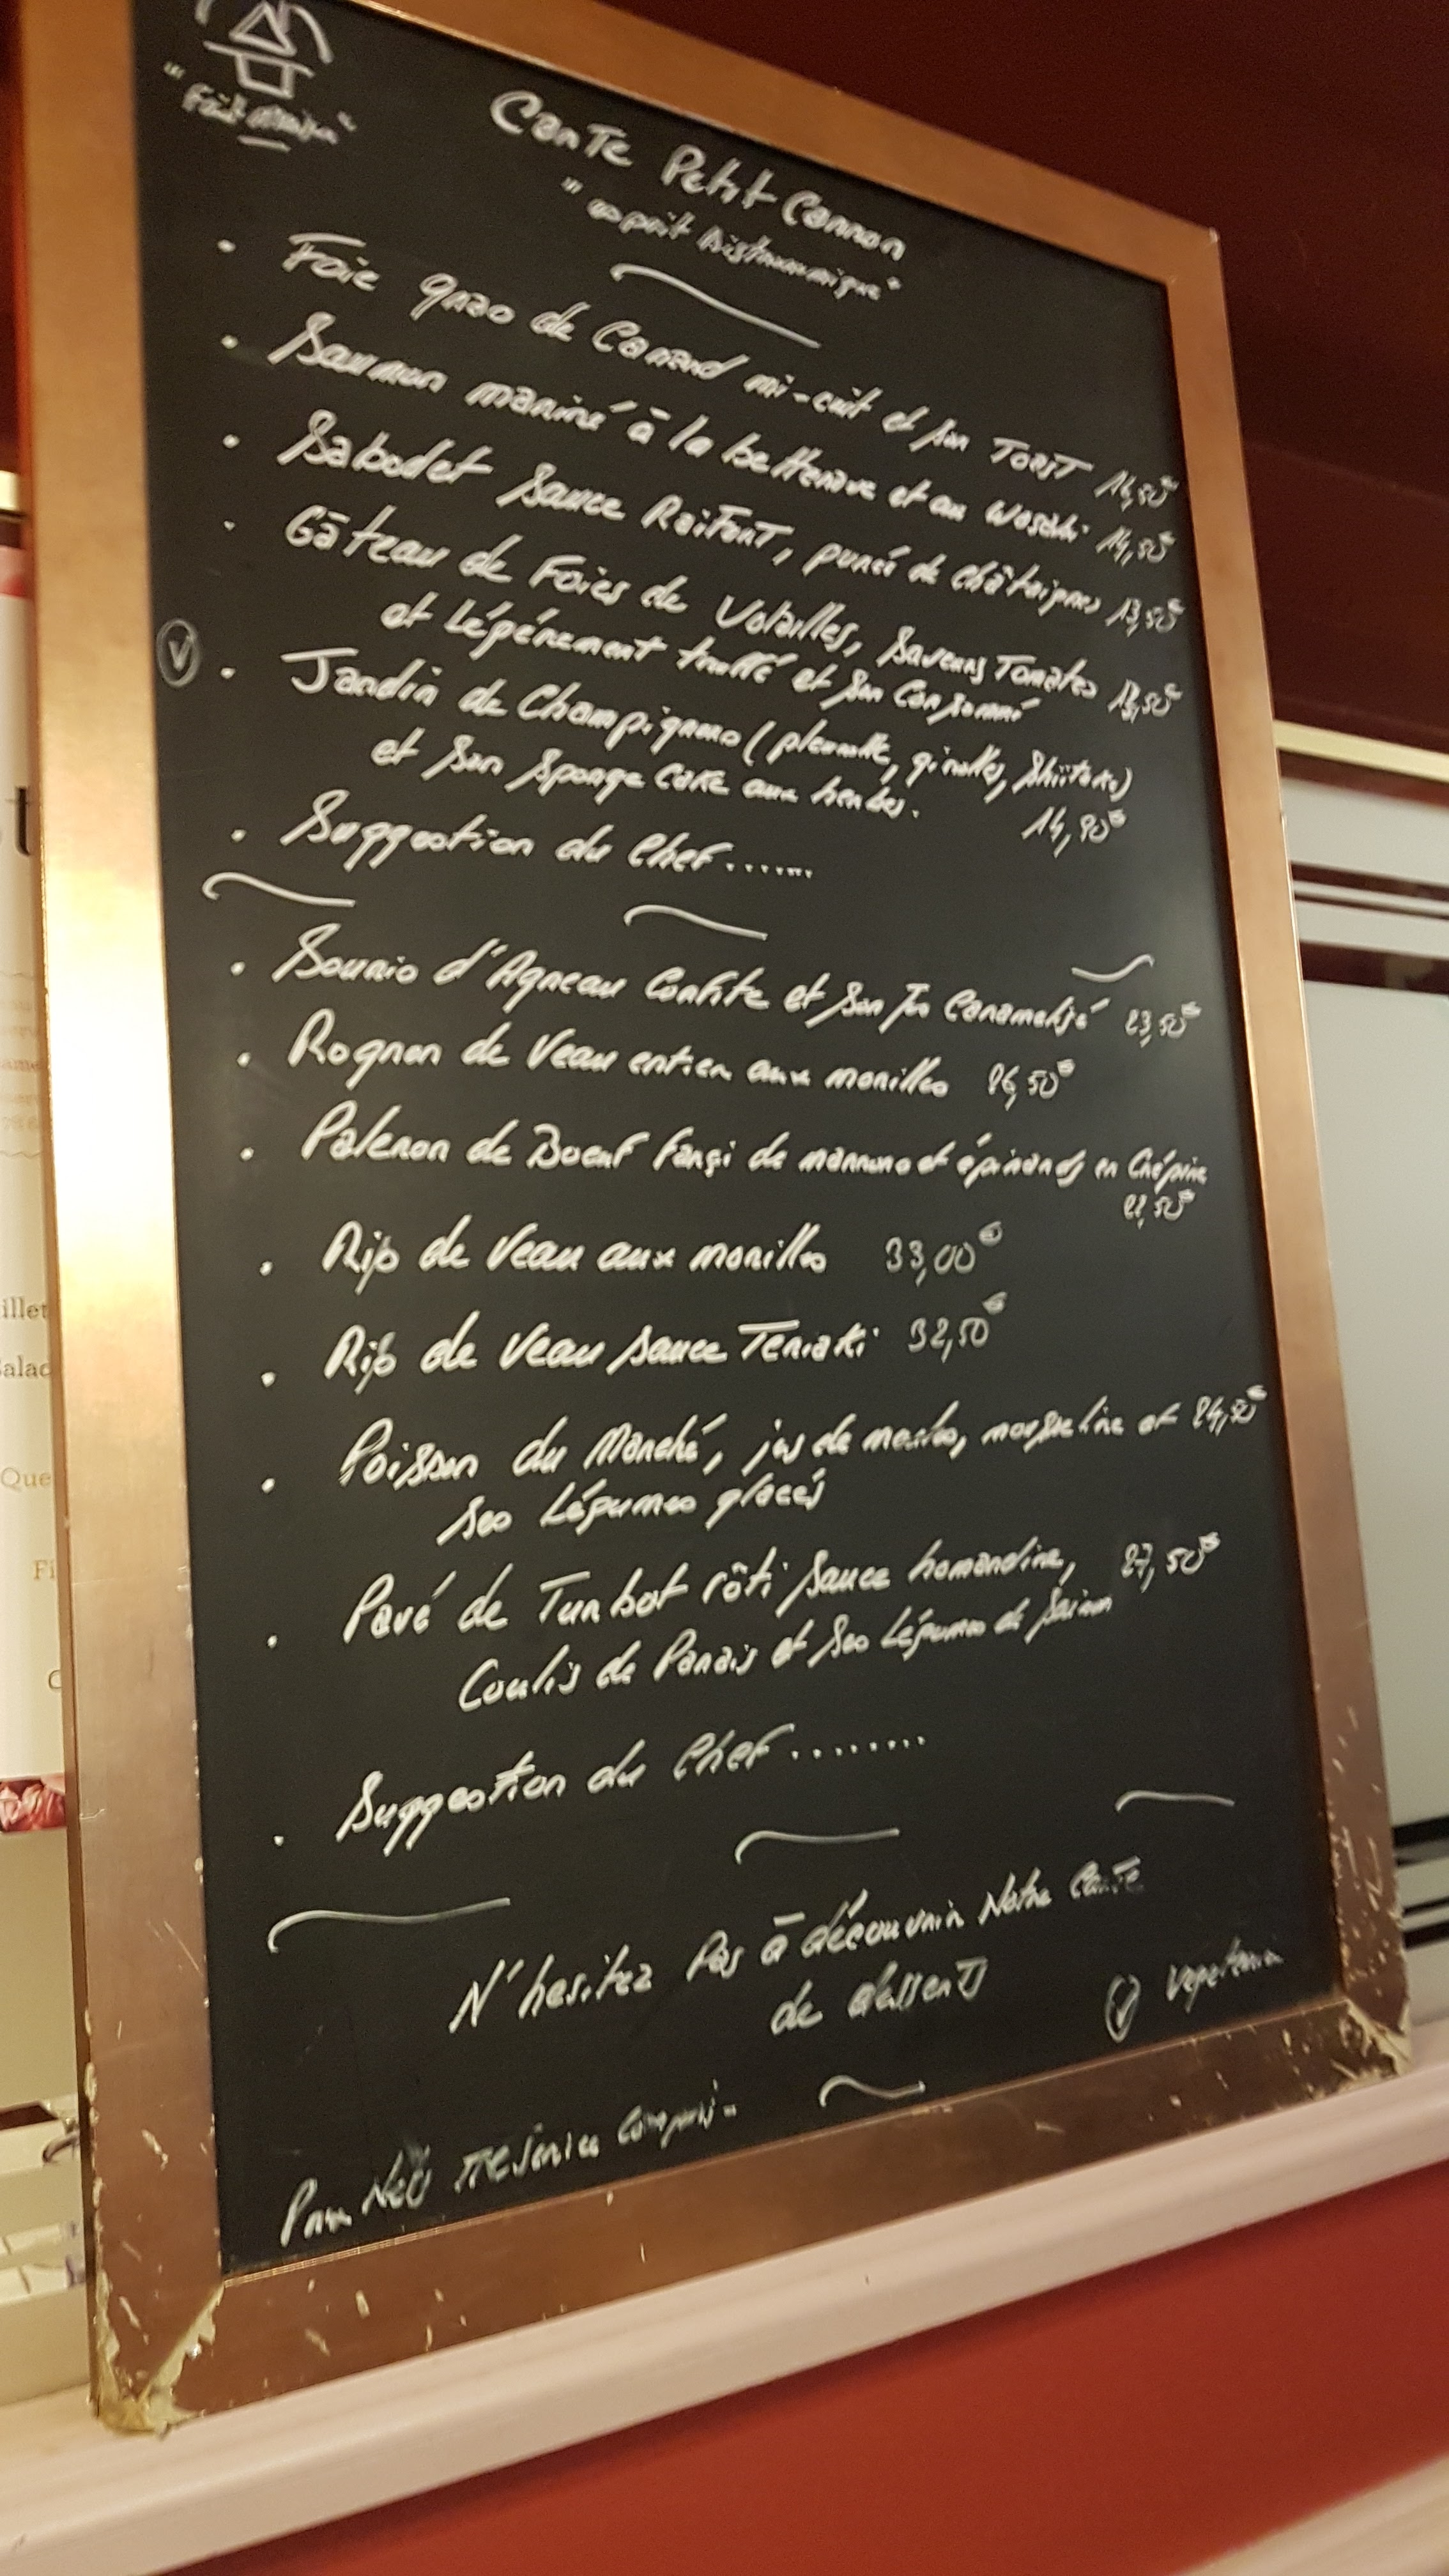 "Fait Maison"
Carte Petit Carron
"esprit Bistronomique"
• Foie gras de Canard mi-cuit et son Toast
• Saumon mariné à la betterave et au Wasabi 14,50€
• Sabodet Sauce Raifort, purée de châtaignes 13,50€
• Gâteau de Foies de Volailles, Saveurs Tomates
et Légérement truffé et son Consommé
V • Jardin de Champignons (pleurotte, girolles, Shiitake)
et son Sponge Cake aux herbes. 14,90€
• Suggestion du Chef.......
• Souris d'Agneau Confite et son Jus Caramelisé 23,50€
• Rognon de Veau entier aux morilles 26,50€
• Paleron de Boeuf Farçi de marrons et épinards en Crépine
22,50€
• Ris de Veau aux morilles 33,00€
• Ris de Veau Sauce Teriaki 32,50€
• Poisson du Marché, jus de moules, mousseline et 24,50€
ses Légumes glacés
• Pavé de Turbot rôti Sauce homardine, 27,50€
Coulis de Panais et ses Légumes de Saison
• Suggestion du Chef........
N'hesitez Pas à découvrir Notre Carte
de desserts
V Vegetarien
Prix Nets TTC Service Compris-
illet
Salad
Que
Fi